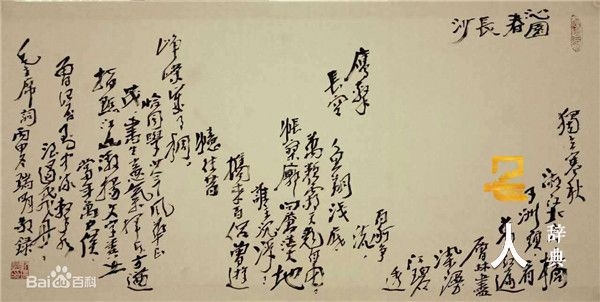 沁園
春
長
沙
獨立寒秋
湘江北
橘
子洲頭看
萬山紅遍
層林盡
染漫
江碧
透
百舸爭
流
鷹擊
長空
魚翔淺底
萬類霜天競自由
悵寥廓問蒼茫大地
誰主沉浮
攜來百侶曾遊
憶往昔
崢嶸歲月稠
恰同學少年風華正
茂書生意氣揮斥方遒
指點江山激揚文字糞土
當年萬戶侯
曾記否到中流擊水
浪遏飛舟
毛主席詞丙申冬瑞明敬錄
Bai百科
人 辞典